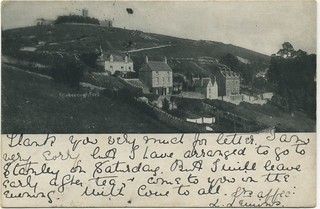 Thank you very much for letter. I am
very sorry but I have arranged to go to
Stanley on Saturday. But I will leave
early after tea & come to you in the
evening. With love to all. Yrs affec:
L.